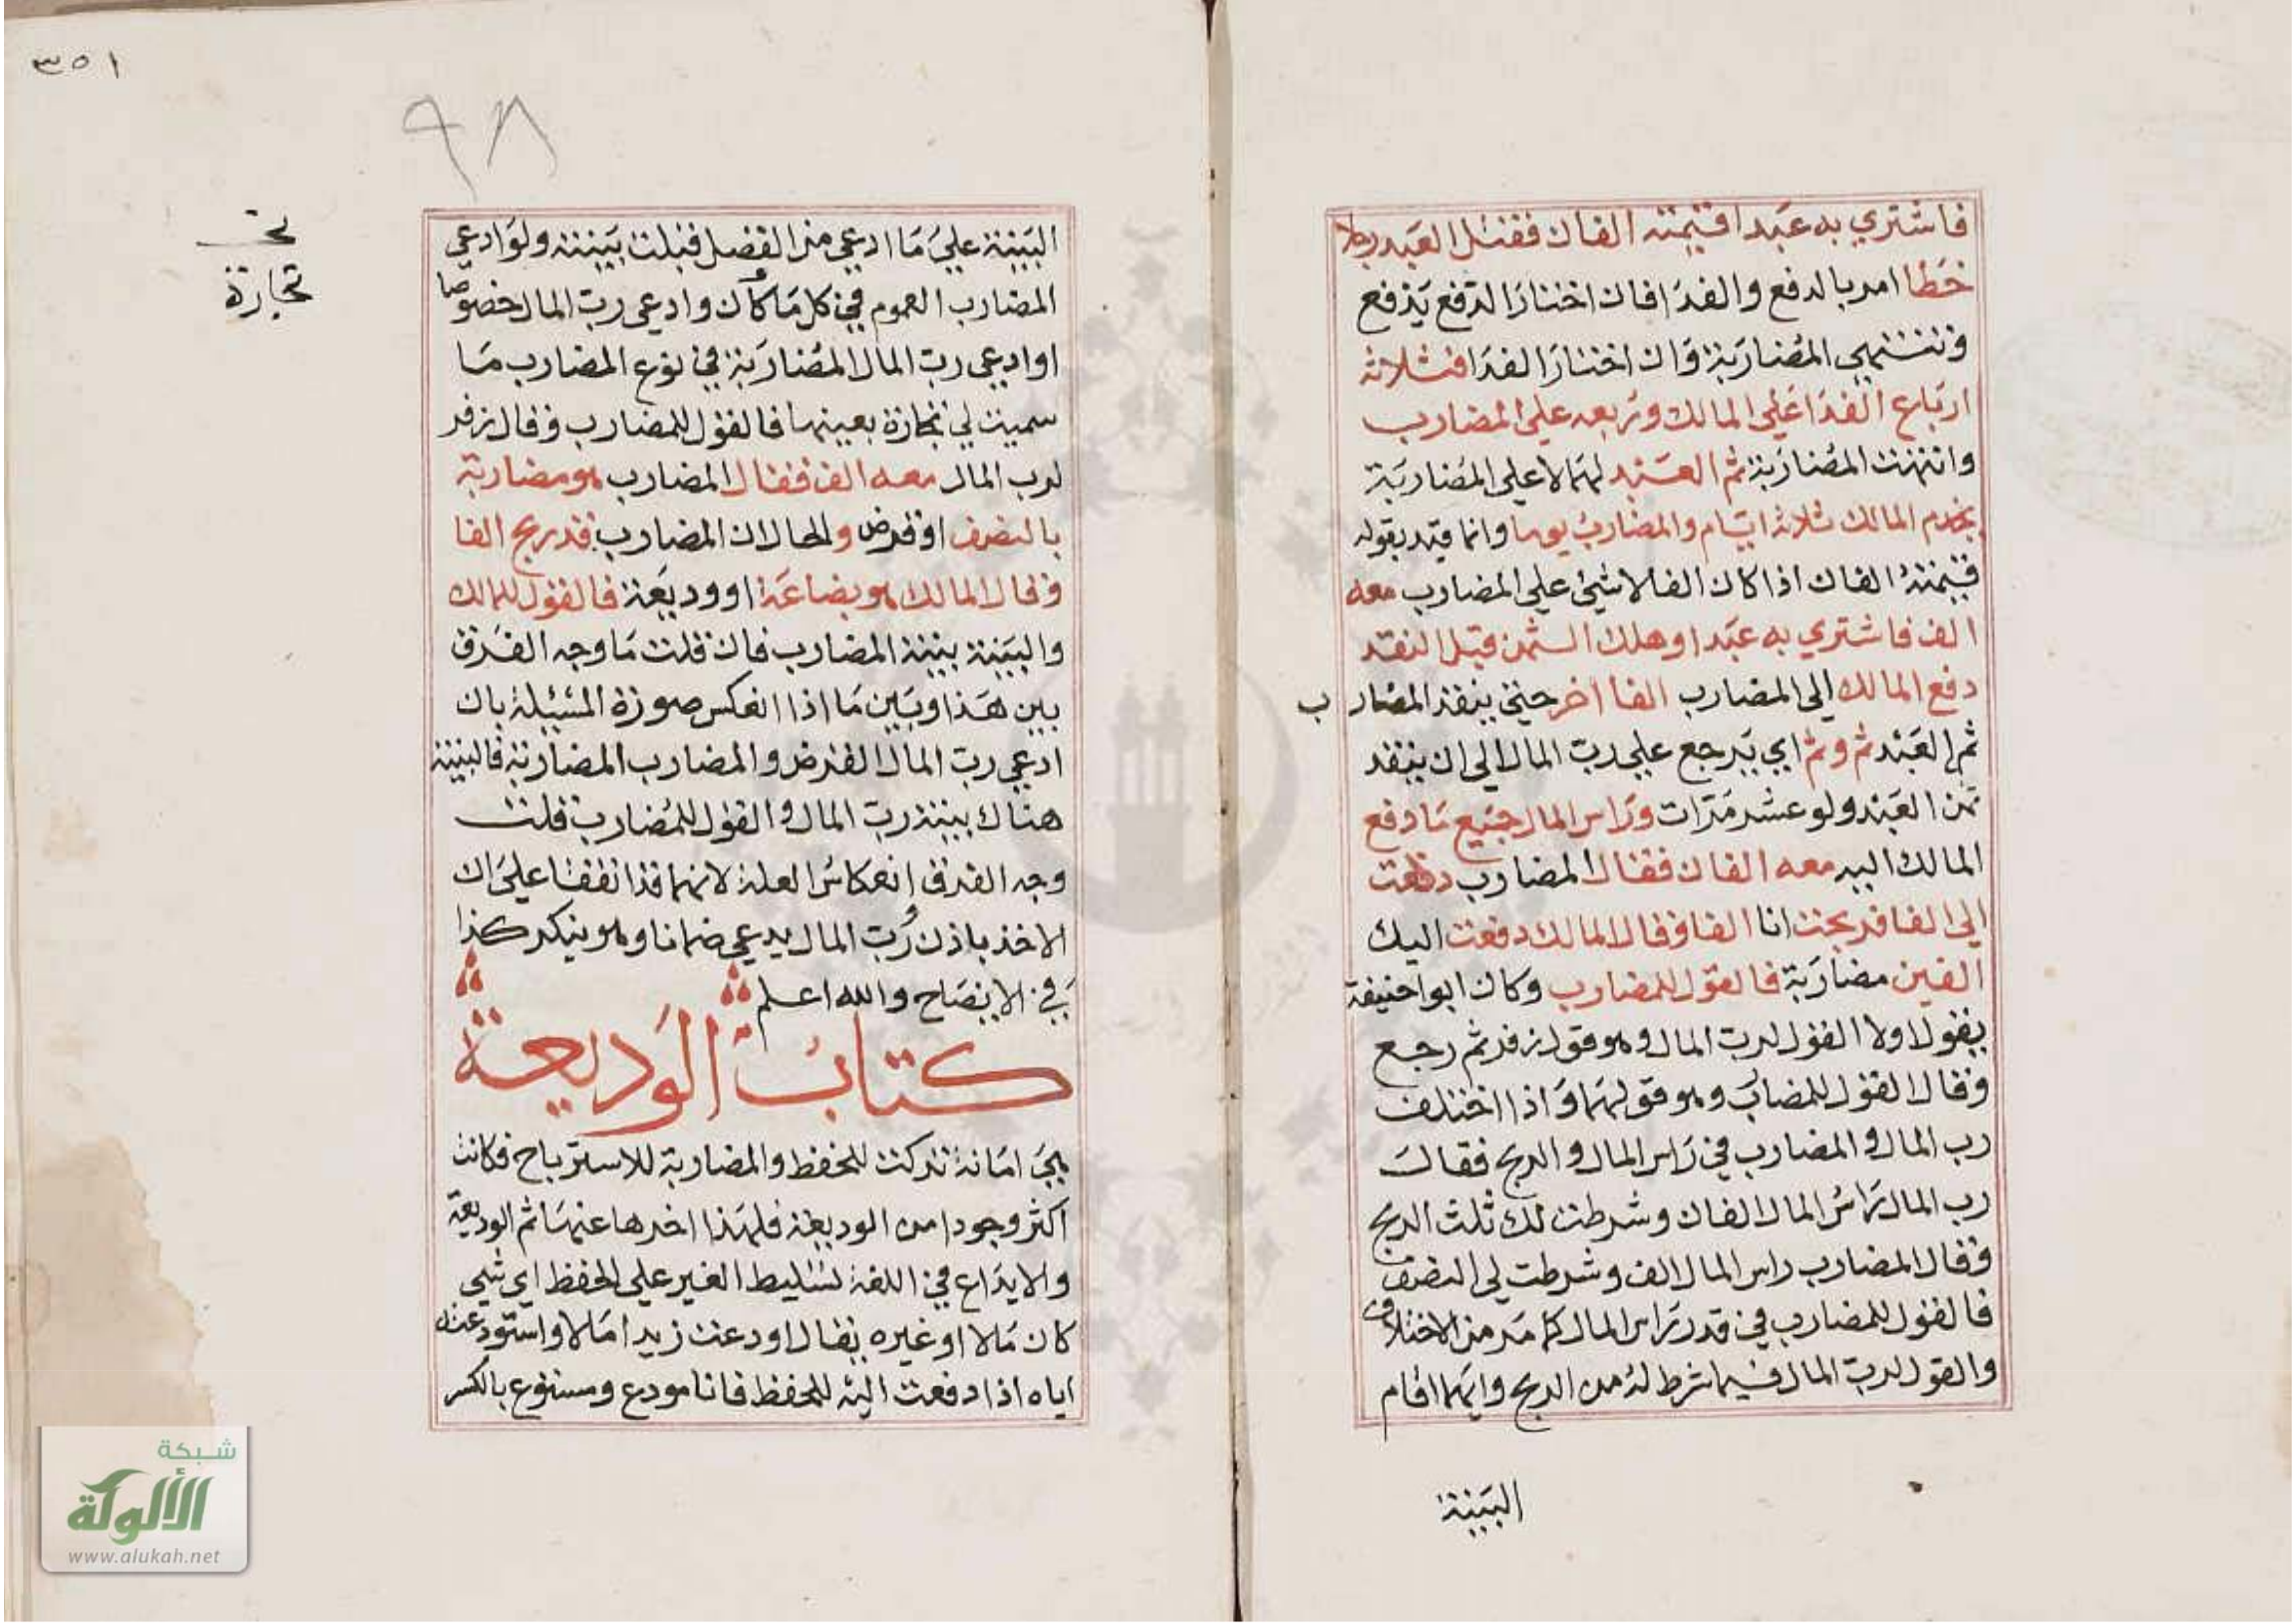 فاشتري به عبدا قيمته الفان فقتل العبد رجلا
خطا امر بالدفع والفدا فان اختارا الدفع يدفع
وتنتهي المضاربة وان اختارا الفدا فثلاثة
ارباع الفدا علي المالك وربعه علي المضارب
وانتهت المضاربة ثم العبد لهما لا علي المضاربة
يخدم المالك ثلاثة ايام والمضارب يوما وانما قيد بقوله
قيمته الفان اذا كان الفا لا شيئ علي المضارب معه
الف فاشتري به عبدا وهلك الثمن قبل النقد
دفع المالك الي المضارب الفا اخر حتي ينقد المضارب
ثم العبد ثم وثم اي يرجع علي رب المال الي ان ينقد
ثمن العبد ولو عشر مرات وراس المال جميع ما دفع
المالك اليه معه الفان فقال المضارب دفعت
الي الفا وربحت انا الفا وقال المالك دفعت اليك
الفين مضاربة فالقول للمضارب وكان ابو احنيفة
يقول اولا القول لرب المال وهو قول زفر ثم رجع
وقال القول للمضاب وهو قولهما واذا اختلف
رب المال والمضارب في راس المال والربح فقال
رب المال راس المال الفان وشرطت لك ثلث الربح
وقال المضارب راس المال الف وشرطت لي النصف
فالقول للمضارب في قدر راس المال كما مر من الاختلاف
والقول لرب المال فيما شرط له من الربح وايهما اقام
البينة
٣٥١
٩٨
البينة علي ما ادعي من الفضل قبلت بينته ولو ادعي
المضارب العموم في كل ما كان وادعي رب المال خصوصا
او ادعي رب المال المضاربة في نوع المضارب ما
سميت لي تجارة بعينها فالقول للمضارب وقال زفر
لرب المال معه الف فقال المضارب هو مضاربة
بالنصف او قرض والحال ان المضارب قد ربح الفا
وقال المالك هو بضاعة او وديعة فالقول للمالك
والبينة بينة المضارب فان قلت ما وجه الفرق
بين هذا وبين ما اذا انعكس صورة المسئيلة بان
ادعي رب المال القرض والمضارب المضاربة فالبينة
هناك بينة رب المال والقول للمضارب قلت
وجه الفرق انعكاس العلة لانهما قد اتفقا علي ان
الاخذ باذن رب المال يدعي ضمانا وهو ينكر كذا
في الايضاح والله اعلم
كتاب الوديعة
هي امانة تركت للحفظ والمضاربة للاسترباح فكانت
اكثر وجودا من الوديعة فلهذا اخرها عنها ثم الوديعة
والايداع في اللغة تسليط الغير علي الحفظ اي شيي
كان مالا او غيره يقال اودعت زيدا مالا واستودعته
اياه اذا دفعت اليه للحفظ فانا مودع ومستوع بالكسر
تجارة
شبكة
الألوكة
www.alukah.net